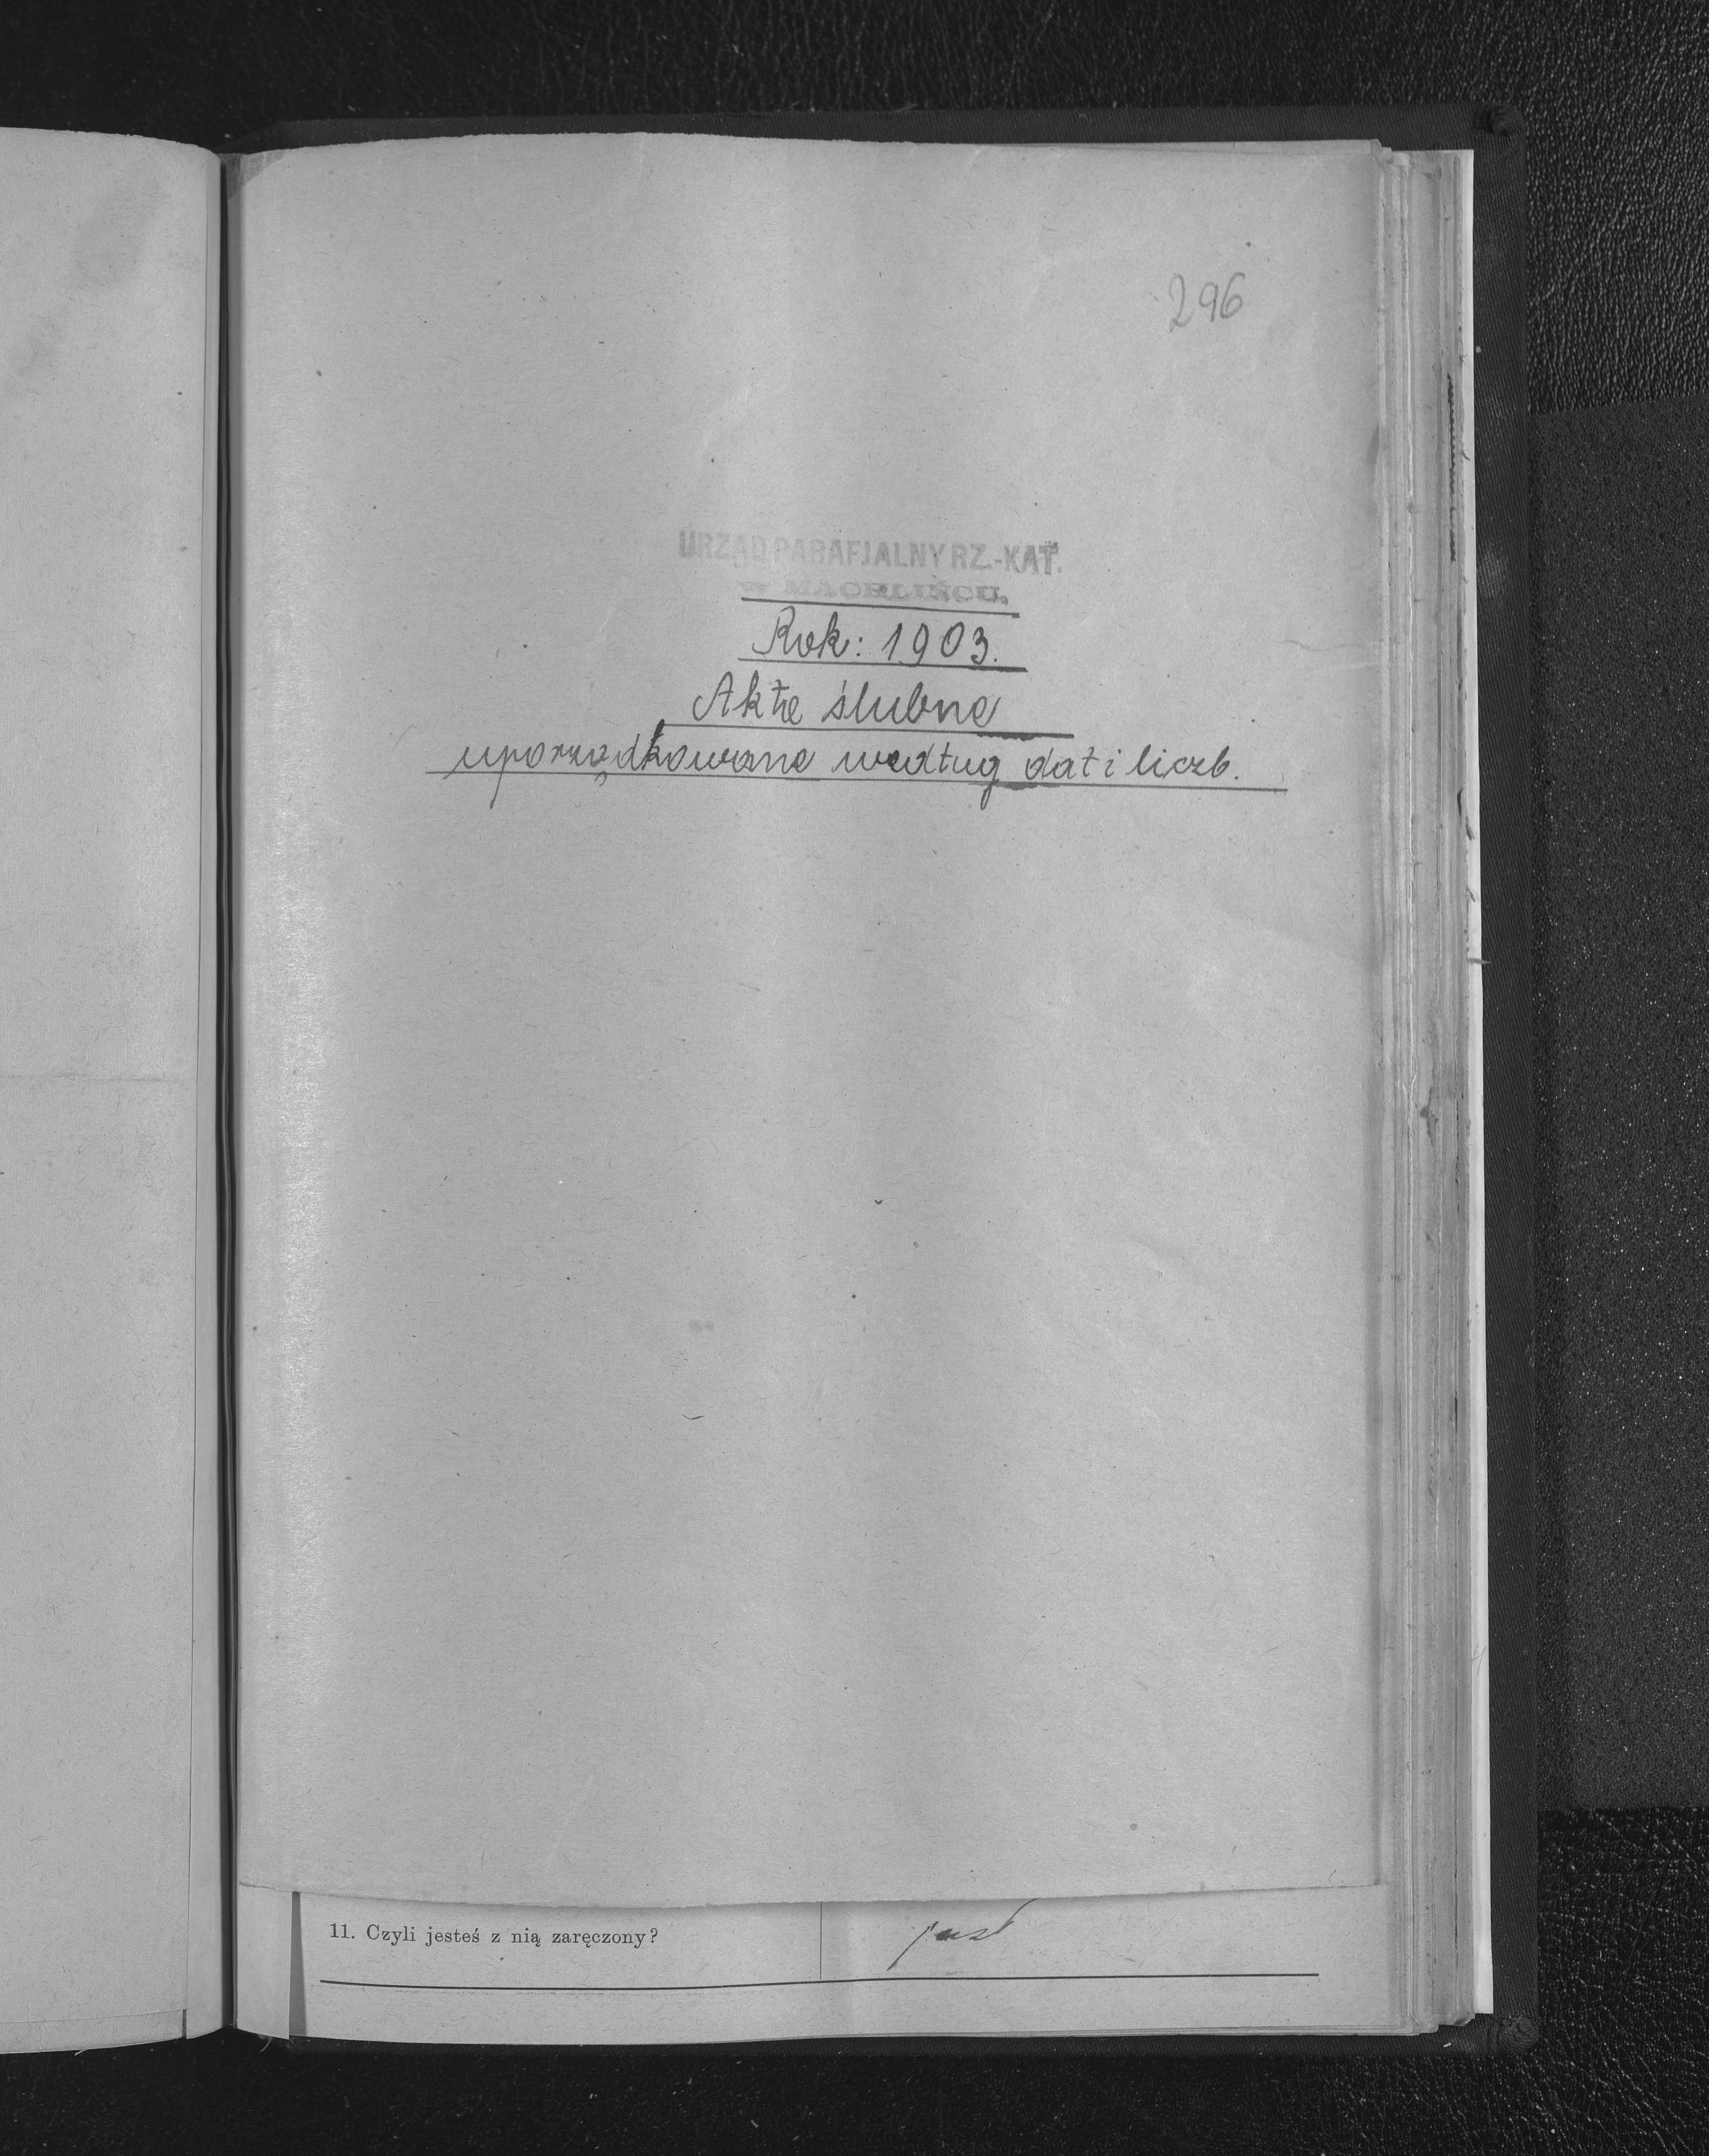 296
URZĄD PARAFJALNY RZ.-KAT.
w MACHLIŃCU.
Rok: 1903.
Akta ślubne
uporządkowane według dat i liczb.
11. Czyli jesteś z nią zaręczony?